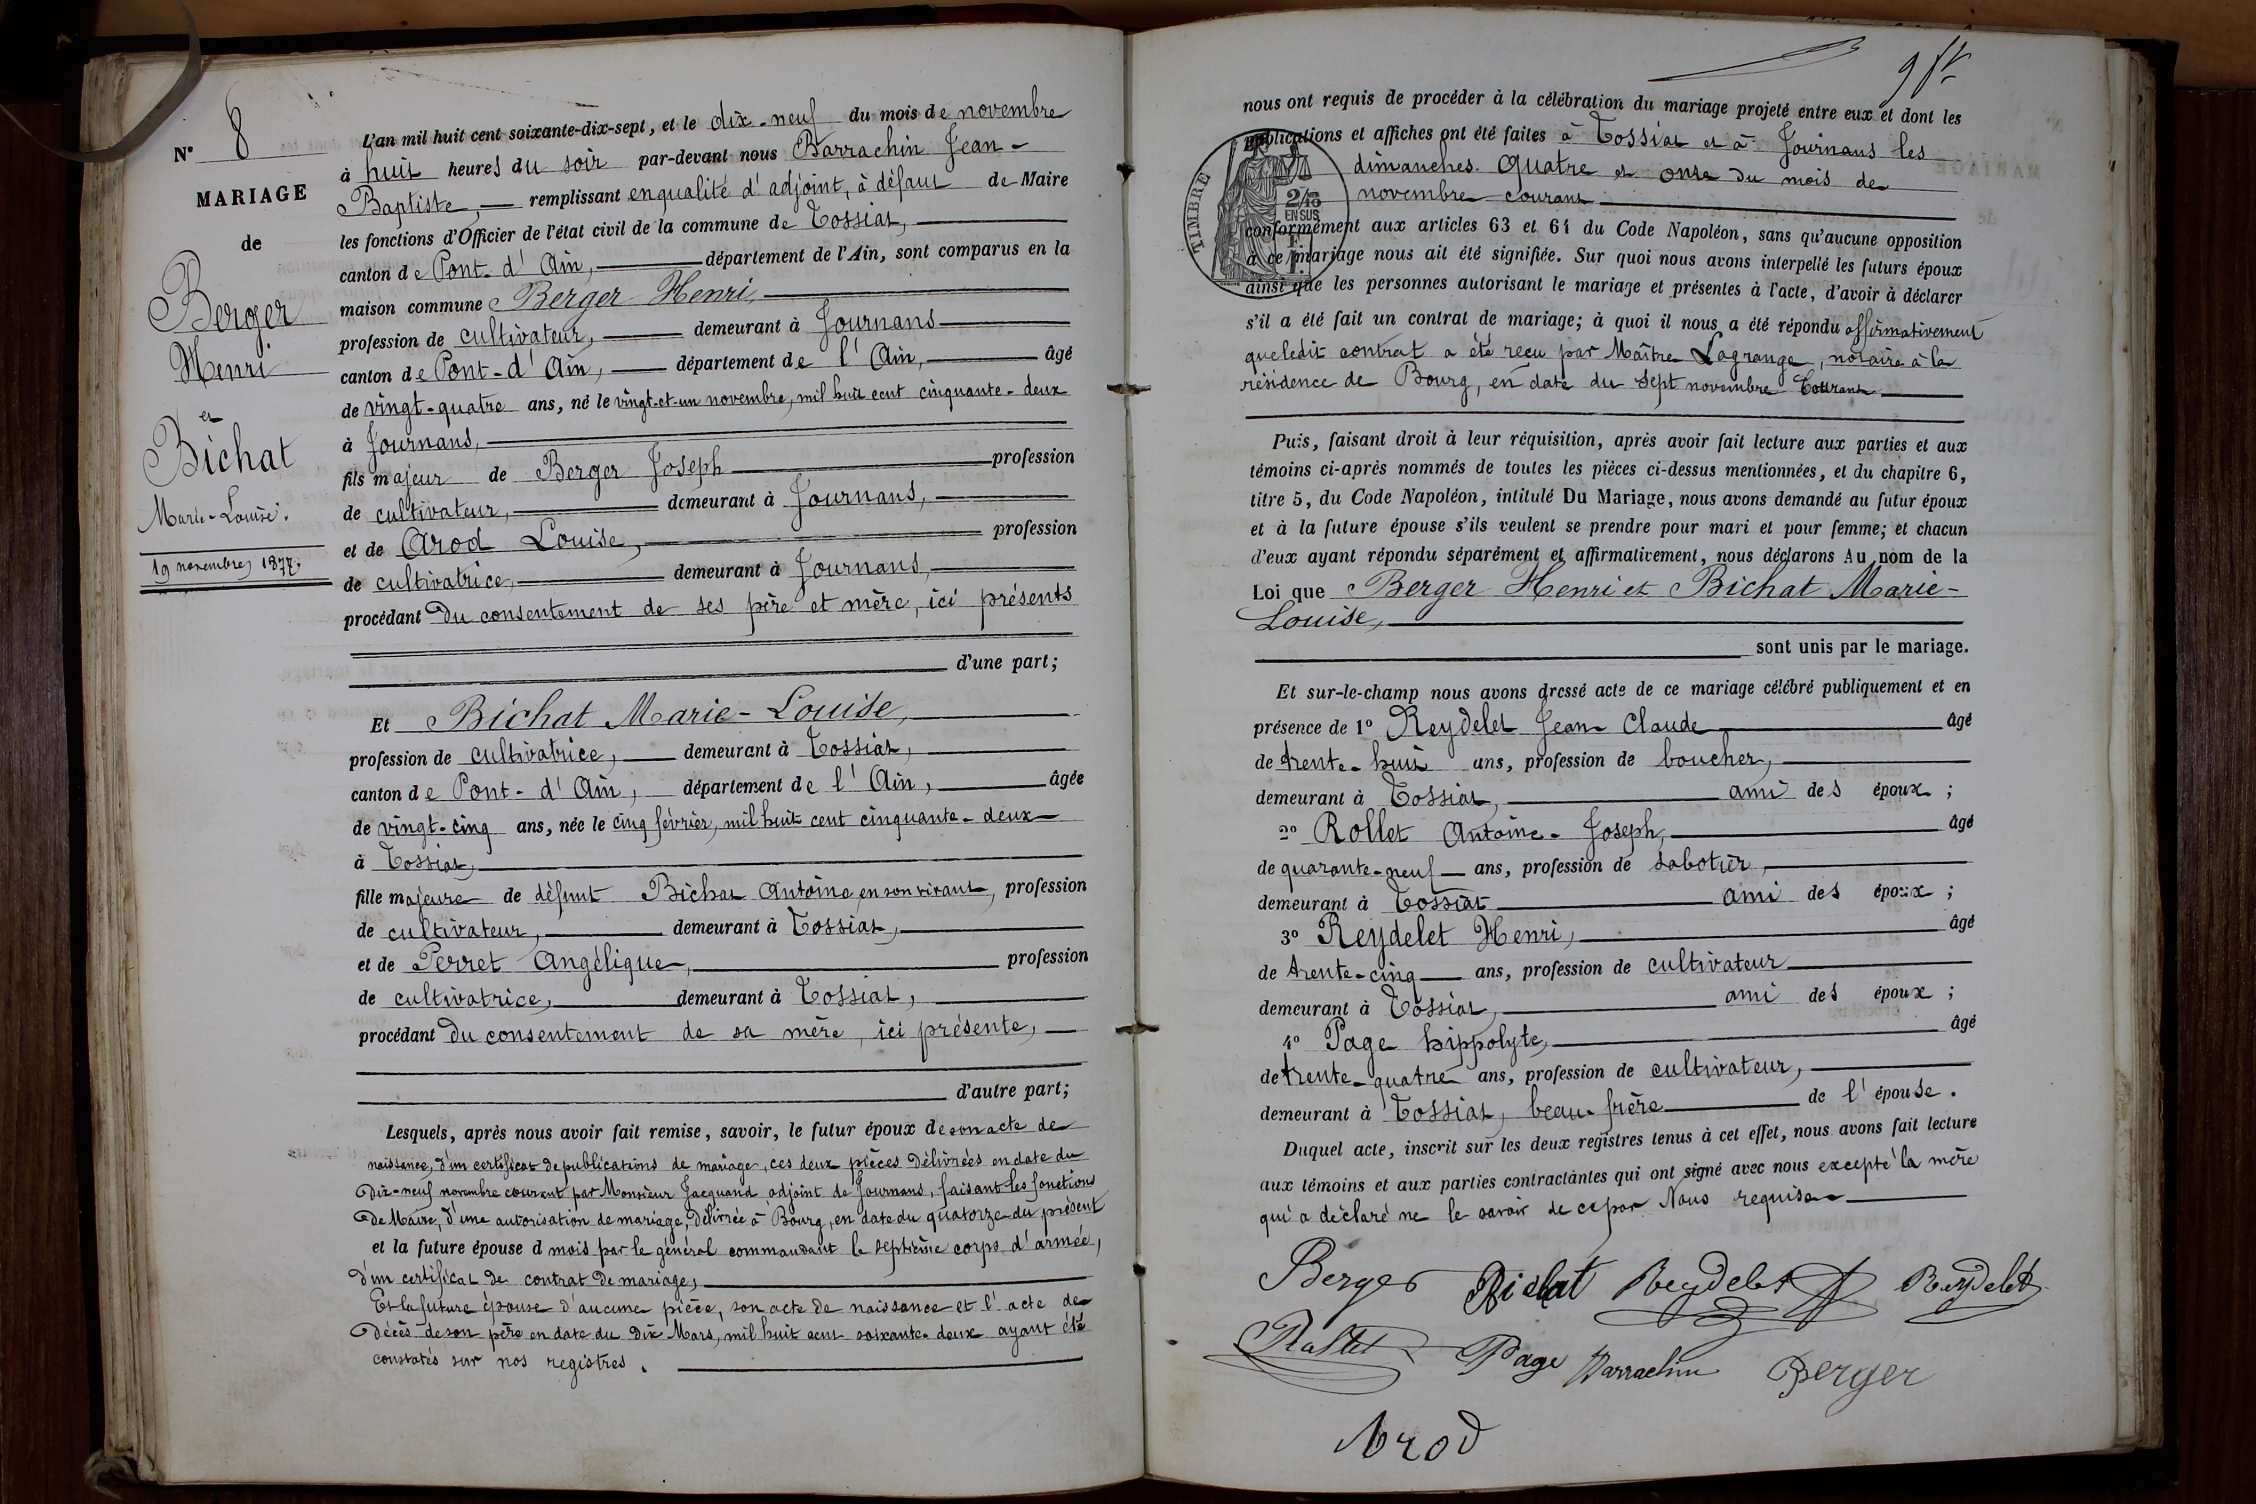 N° 8
MARIAGE
de
Berger
Henri
et
Bichat
Marie-Louise.
19 novembre 1877.
L'an mil huit cent soixante-dix-sept, et le dix-neuf du mois de novembre
à huit heures du soir par-devant nous Barrachin Jean-
Baptiste, remplissant en qualité d'adjoint, à défaut de Maire
les fonctions d'Officier de l'état civil de la commune de Tossiat,
canton de Pont-d'Ain, département de l'Ain, sont comparus en la
maison commune Berger Henri,
profession de cultivateur, demeurant à Journans
canton de Pont-d'Ain, département de l'Ain, âgé
de vingt-quatre ans, né le vingt-et-un novembre, mil huit cent cinquante-deux
à Journans,
fils majeur de Berger Joseph profession
de cultivateur, demeurant à Journans,
et de Arod Louise, profession
de cultivatrice, demeurant à Journans,
procédant du consentement de ses père et mère, ici présents
d'une part;
Et Bichat Marie-Louise,
profession de cultivatrice, demeurant à Tossiat,
canton de Pont-d'Ain, département de l'Ain, âgée
de vingt-cinq ans, née le cinq février, mil huit cent cinquante-deux
à Tossiat,
fille majeure de défunt Bichat Antoine en son vivant, profession
de cultivateur, demeurant à Tossiat,
et de Perret Angélique, profession
de cultivatrice, demeurant à Tossiat,
procédant du consentement de sa mère, ici présente,
d'autre part;
Lesquels, après nous avoir fait remise, savoir, le futur époux de son acte de
naissance, d'un certificat de publications de mariage, ces deux pièces délivrées en date du
dix-neuf novembre courant par Monsieur Jacquand adjoint de Journans, faisant les fonctions
de Maire, d'une autorisation de mariage, délivrée à Bourg, en date du quatorze du présent
et la future épouse d mois par le général commandant le septième corps d'armée,
d'un certificat de contrat de mariage,
Et la future épouse d'aucune pièce, son acte de naissance et l'acte de
décès de son père en date du dix Mars, mil huit cent soixante-deux ayant été
constatés sur nos registres.
9
nous ont requis de procéder à la célébration du mariage projeté entre eux et dont les
publications et affiches ont été faites à Tossiat et à Journans les
dimanches quatre et onze du mois de
novembre courant
TIMBRE
2/10
EN SUS
conformément aux articles 63 et 64 du Code Napoléon, sans qu'aucune opposition
à ce mariage nous ait été signifiée. Sur quoi nous avons interpellé les futurs époux
ainsi que les personnes autorisant le mariage et présentes à l'acte, d'avoir à déclarer
s'il a été fait un contrat de mariage; à quoi il nous a été répondu affirmativement
que ledit contrat a été reçu par Maître Lagrange, notaire à la
résidence de Bourg, en date du sept novembre courant
Puis, faisant droit à leur réquisition, après avoir fait lecture aux parties et aux
témoins ci-après nommés de toutes les pièces ci-dessus mentionnées, et du chapitre 6,
titre 5, du Code Napoléon, intitulé Du Mariage, nous avons demandé au futur époux
et à la future épouse s'ils veulent se prendre pour mari et pour femme; et chacun
d'eux ayant répondu séparément et affirmativement, nous déclarons Au nom de la
Loi que Berger Henri et Bichat Marie-
Louise,
sont unis par le mariage.
Et sur-le-champ nous avons dressé acte de ce mariage célébré publiquement et en
présence de 1° Reydelet Jean Claude âgé
de trente-huit ans, profession de boucher,
demeurant à Tossiat, ami des époux;
2° Rollet Antoine-Joseph, âgé
de quarante-neuf ans, profession de sabotier,
demeurant à Tossiat ami des époux;
3° Reydelet Henri, âgé
de trente-cinq ans, profession de cultivateur
demeurant à Tossiat, ami des époux;
4° Page hippolyte, âgé
de trente-quatre ans, profession de cultivateur,
demeurant à Tossiat, beau-frère de l'épouse.
Duquel acte, inscrit sur les deux registres tenus à cet effet, nous avons fait lecture
aux témoins et aux parties contractantes qui ont signé avec nous excepté la mère
qui a déclaré ne le savoir de ce par Nous requise
Berger Bichat Reydelet Reydelet
Rollet Page Barrachin Berger
Arod